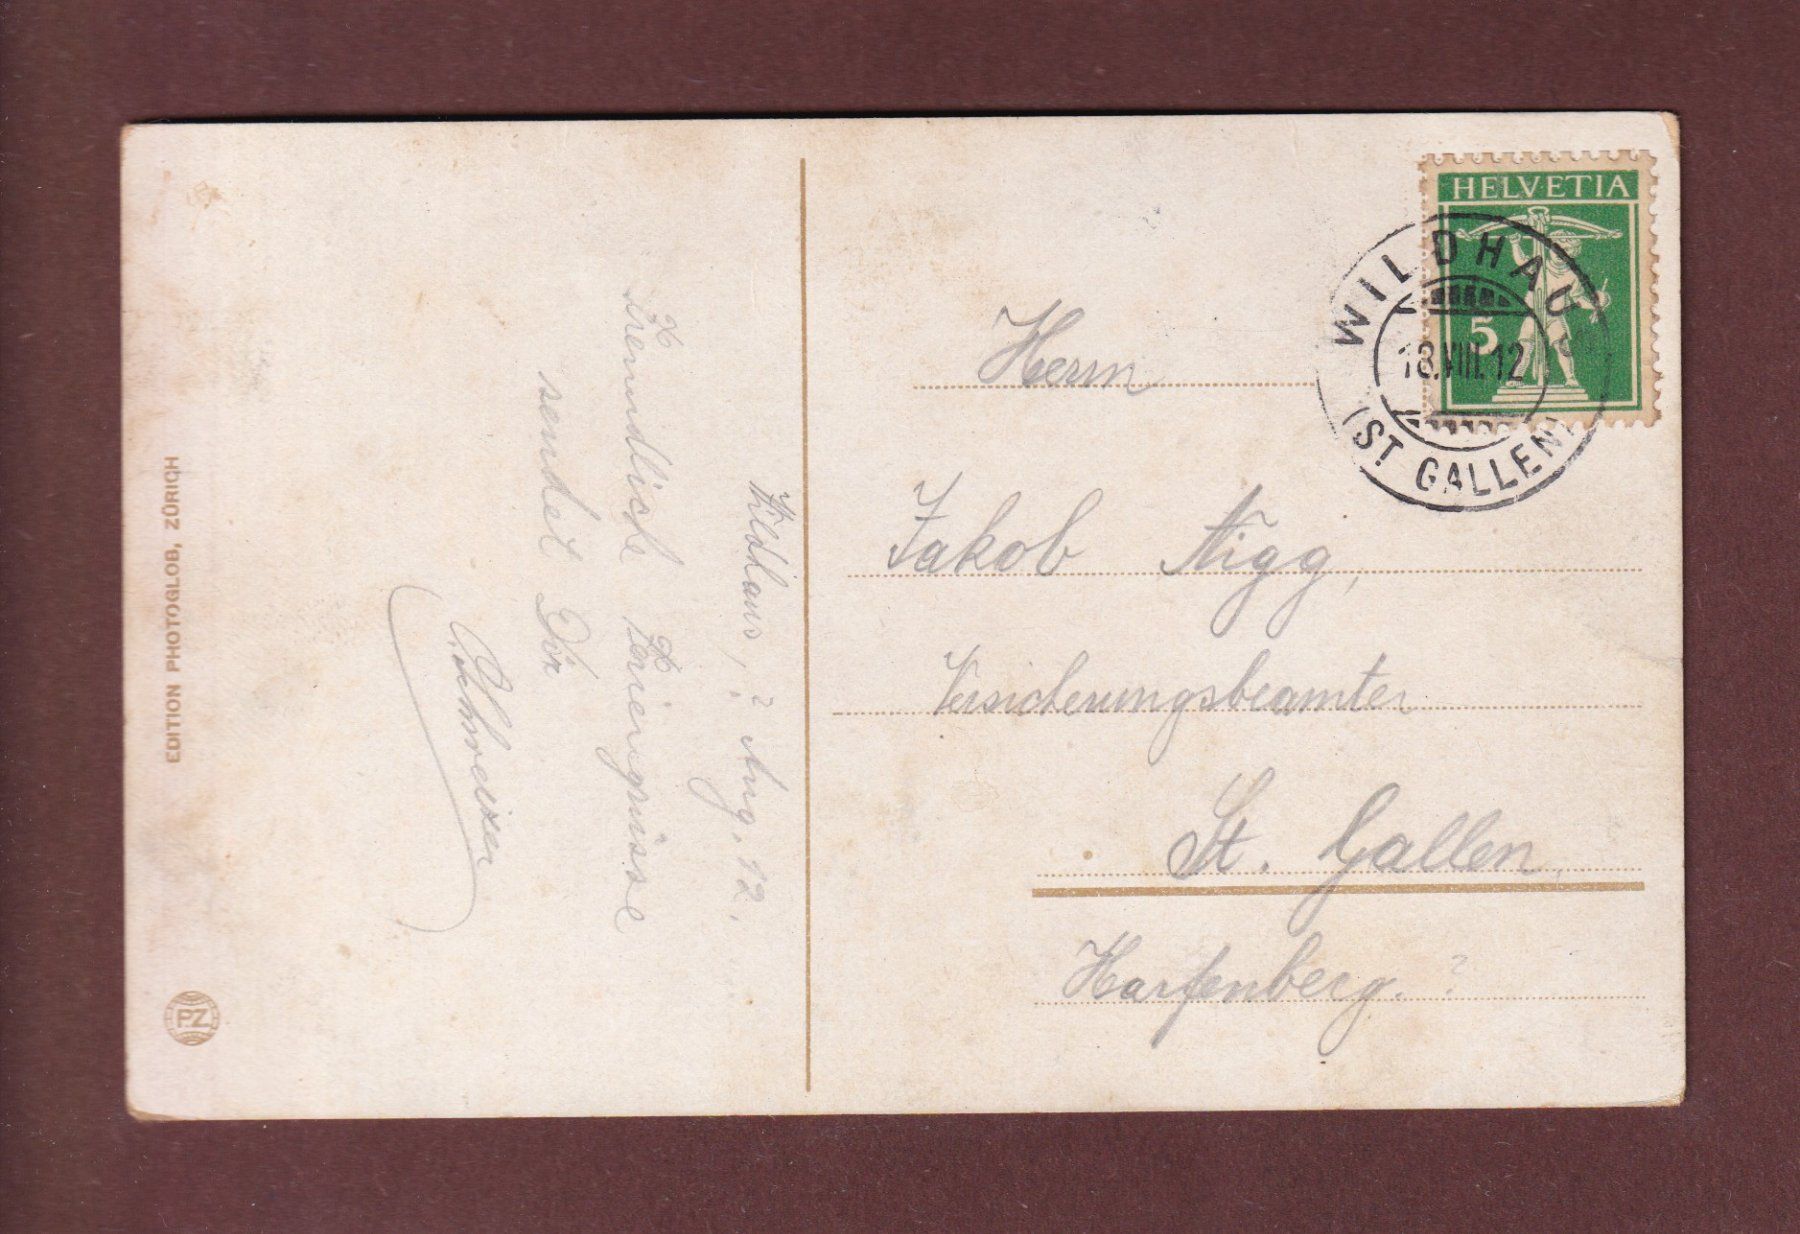 EDITION PHOTOGLOB, ZÜRICH
PZ
Wildhaus, ? Aug. 12.
Freundliche Feriengrüsse
sendet Dir
Schweizer
HELVETIA
5
WILDHAUS
18.VIII.12
(ST. GALLEN)
Herrn
Jakob Nigg,
Versicherungsbeamter
St. Gallen,
Harfenberg. ?